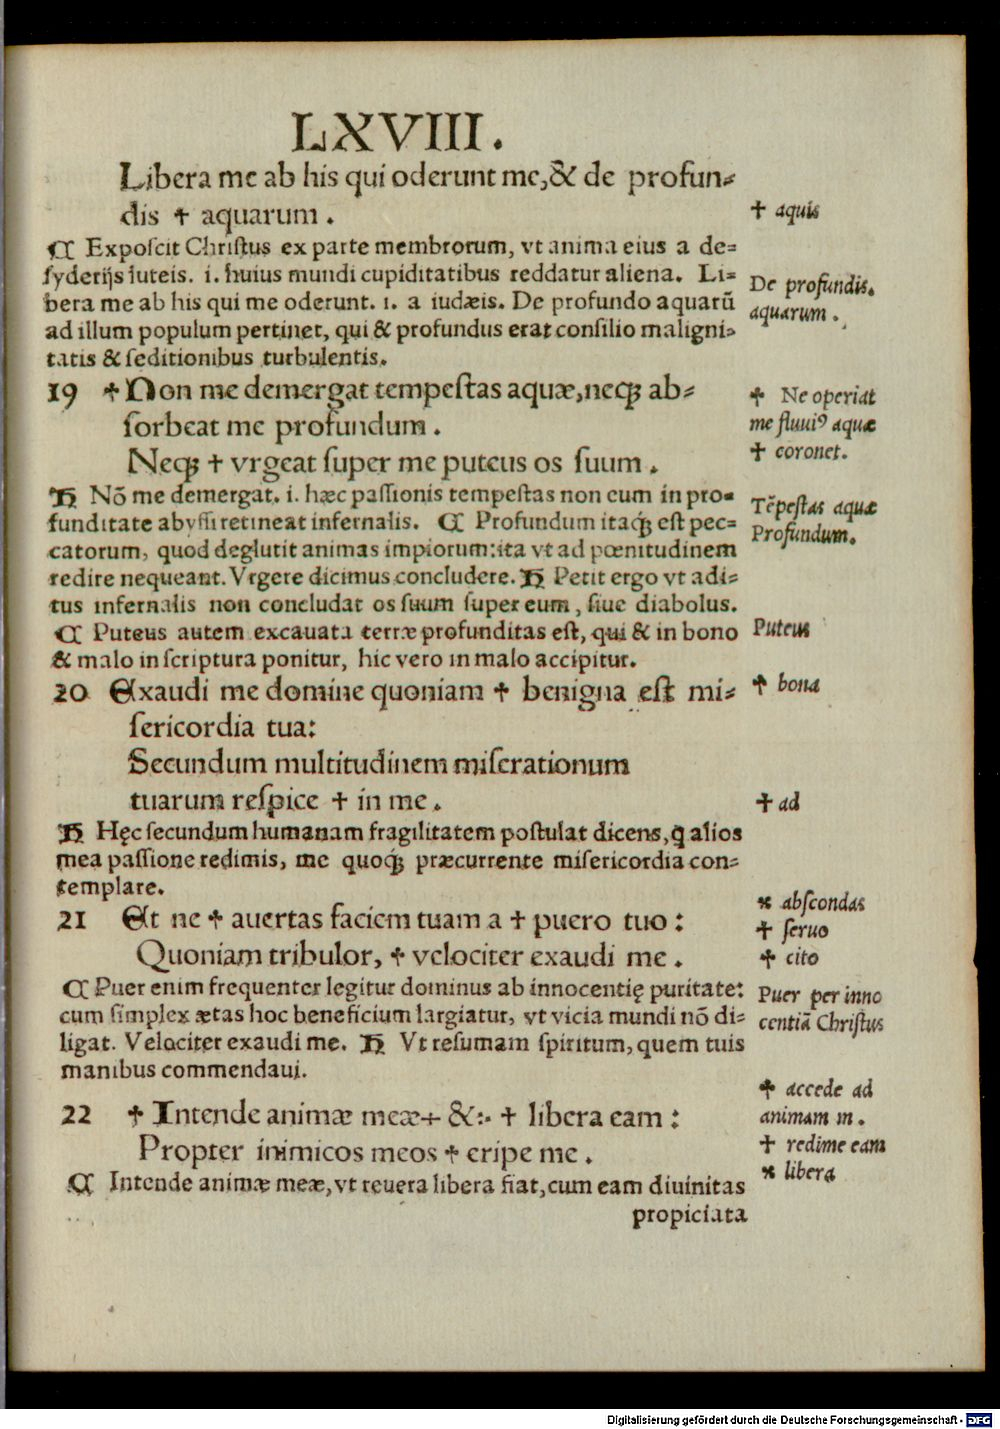 LXVIII.
Libera me ab his qui oderunt me, & de profun⸗
dis ✝ aquarum .
✝ aquis
₵ Exposcit Christus ex parte membrorum, vt anima eius a de⸗
syderijs luteis. i. huius mundi cupiditatibus reddatur aliena. Li⸗
bera me ab his qui me oderunt. i. a iudæis. De profundo aquarū
ad illum populum pertinet, qui & profundus erat consilio maligni⸗
tatis & seditionibus turbulentis.
De profundis.
aquarum .
19 ✝ Non me demergat tempestas aquæ, neqꝫ ab⸗
sorbeat me profundum .
Neqꝫ ✝ vrgeat super me puteus os suum .
✝ Ne operiat
me fluuiꝰ aquæ
✝ coronet.
H Nō me demergat. i. hæc passionis tempestas non eum in pro⸗
funditate abyssi retineat infernalis. ₵ Profundum itaqꝫ est pec⸗
catorum, quod deglutit animas impiorum: ita vt ad pœnitudinem
redire nequeant. Vrgere dicimus concludere. H Petit ergo vt adi⸗
tus infernalis non concludat os suum super eum, siue diabolus.
₵ Puteus autem excauata terræ profunditas est, qui & in bono
& malo in scriptura ponitur, hic vero in malo accipitur.
Tēpestas aquæ
Profundum.
Puteus
20 Exaudi me domine quoniam ✝ benigna est mi⸗
sericordia tua:
Secundum multitudinem miserationum
tuarum respice ✝ in me .
✝ bona
✝ ad
H Hęc secundum humanam fragilitatem postulat dicens, ꝙ alios
mea passione redimis, me quoqꝫ præcurrente misericordia con⸗
templare.
21 Et ne ✝ auertas faciem tuam a ✝ puero tuo :
Quoniam tribulor, ✝ velociter exaudi me .
✝ abscondas
✝ seruo
✝ cito
₵ Puer enim frequenter legitur dominus ab innocentię puritate:
cum simplex ætas hoc beneficium largiatur, vt vicia mundi nō di⸗
ligat. Velociter exaudi me. H Vt resumam spiritum, quem tuis
manibus commendaui.
Puer per inno
centiā Christus
22 ✝ Intende animæ meæ ÷ &:· ✝ libera eam :
Propter inimicos meos ✝ eripe me .
✝ accede ad
animam m .
✝ redime eam
✝ libera
₵ Intende animæ meæ, vt reuera libera fiat, cum eam diuinitas
propiciata
Digitalisierung gefördert durch die Deutsche Forschungsgemeinschaft - DFG